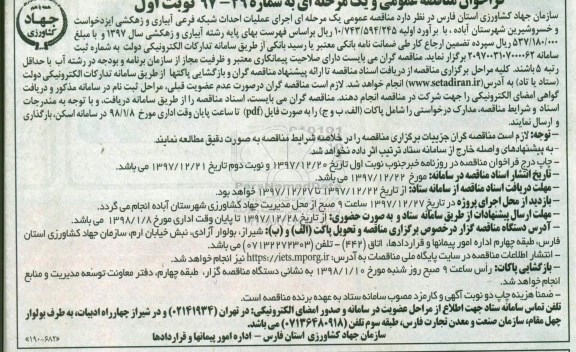 فراخوان مناقصه عمومی و یک مرحله ای به شماره ۳۹-۹۷ نوبت اول
جهاد
کشاورزی
سازمان جهاد کشاورزی استان فارس در نظر دارد مناقصه عمومی یک مرحله ای اجرای عملیات احداث شبکه فرعی آبیاری و زهکشی ایزدخواست
و خسروشیرین شهرستان آباده ، با برآورد اولیه ۱۰/۷۴۳/۵۹۴/۲۴۵ ریال براساس فهرست بهای پایه رشته آبیاری و زهکشی سال ۱۳۹۷ و با مبلغ
۵۳۷/۱۸۰/۰۰۰ ریال سپرده تضمین ارجاع کار طی ضمانت نامه بانکی معتبر یا رسید بانکی از طریق سامانه تدارکات الکترونیکی دولت به شماره ثبت
۲۰۹۷۰۰۳۱۰۷۰۰۰۰۶۲ سامانه برگزار نماید. مناقصه گران می بایست دارای صلاحیت پیمانکاری معتبر و ظرفیت مجاز از سازمان برنامه و بودجه در رشته آب با حداقل
رتبه ۵ باشند. کلیه مراحل برگزاری مناقصه از دریافت اسناد مناقصه تا ارائه پیشنهاد مناقصه گران و بازگشایی پاکتها از طریق سامانه تدارکات الکترونیکی دولت
(ستاد یا تاد) به آدرس (www.setadiran.ir) انجام خواهد شد. لازم است مناقصه گران درصورت عدم عضویت قبلی، مراحل ثبت نام در سامانه مذکور و دریافت
گواهی امضای الکترونیکی را جهت شرکت در مناقصه انجام دهند. مناقصه گران می بایست، اسناد مناقصه را از طریق سامانه دریافت، و با توجه به مندرجات
اسناد و شرایط مناقصه، مدارک درخواستی را شامل پاکات (الف، ب و ج) را به صورت فایل (pdf) تا ساعت پایان وقت اداری مورخ ۹۸/۱/۸ در سامانه اسکن، بارگذاری
و ارسال نمایند.
توجه: لازم است مناقصه گران جزییات برگزاری مناقصه را در خلاصه شرایط مناقصه به صورت دقیق مطالعه نمایند.
- به پیشنهادهای واصله خارج از سامانه ستاد ترتیب اثر داده نخواهد شد.
- چاپ درج فراخوان مناقصه در روزنامه خبرجنوب نوبت اول تاریخ ۱۳۹۷/۱۲/۲۰ و نوبت دوم تاریخ ۱۳۹۷/۱۲/۲۱ می باشد.
- تاریخ انتشار اسناد مناقصه در سامانه: مورخ ۱۳۹۷/۱۲/۲۲ می باشد.
- مهلت دریافت اسناد مناقصه از سامانه ستاد: از تاریخ ۱۳۹۷/۱۲/۲۲ تا ۱۳۹۷/۱۲/۲۷ خواهد بود.
- بازدید از محل اجرای پروژه در تاریخ ۱۳۹۷/۱۲/۲۷ ساعت ۹ صبح از محل مدیریت جهاد کشاورزی شهرستان آباده انجام می گردد.
- مهلت ارسال پیشنهادات از طریق سامانه ستاد و به صورت حضوری: از تاریخ ۱۳۹۷/۱۲/۲۸ تا پایان وقت اداری مورخ ۱۳۹۸/۱/۸ می باشد.
- آدرس دستگاه مناقصه گزار درخصوص برگزاری مناقصه و تحویل پاکت (الف) و (ب): شیراز، بولوار آزادی، نبش خیابان ارم، سازمان جهاد کشاورزی استان
فارس، طبقه چهارم اداره امور پیمانها و قراردادها، اتاق (۴۴۲) - تلفن (۰۷۱۳۲۲۷۲۳۰۳) می باشد.
- انتشار اطلاعات مناقصه در سایت پایگاه ملی مناقصات به آدرس: https://iets.mporg.ir نیز انجام خواهد شد.
- بازگشایی پاکات: رأس ساعت ۹ صبح روز شنبه مورخ ۱۳۹۸/۱/۱۰ به نشانی دستگاه مناقصه گزار، طبقه چهارم، دفتر معاونت توسعه مدیریت و منابع
انجام خواهد شد.
- ضمنا هزینه چاپ دو نوبت آگهی و کارمزد مصوب سامانه ستاد به عهده برنده مناقصه است.
تلفن تماس سامانه ستاد جهت اطلاع از مراحل عضویت در سامانه و صدور امضای الکترونیکی: در تهران (۰۲۱۴۱۹۳۴) و در شیراز چهارراه ادبیات، به طرف بولوار
چهل مقام، سازمان صنعت و معدن تجارت فارس، طبقه سوم تلفن (۰۷۱۳۶۴۸۰۹۱۸) می باشد.
سازمان جهاد کشاورزی استان فارس - اداره امور پیمانها و قراردادها
«۱۹۰۰۶۸۲»